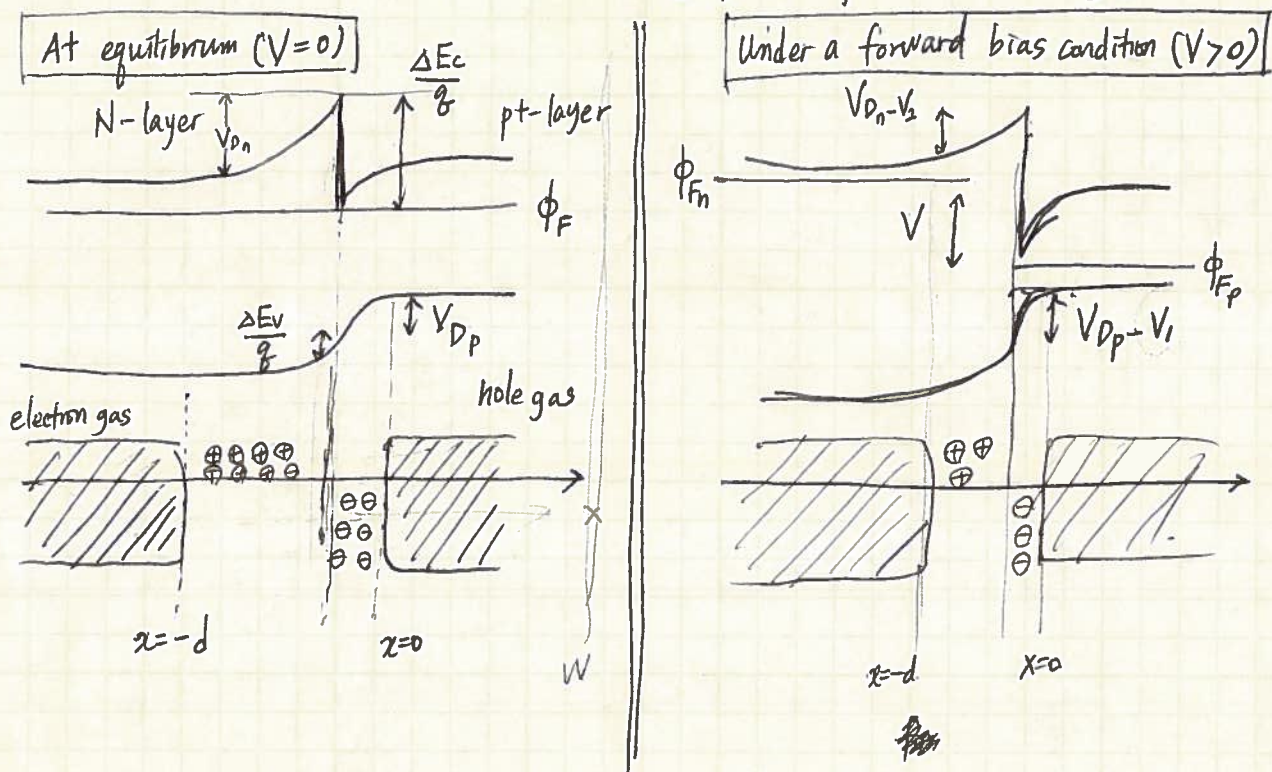 At equilibrium (V=0)
ΔEc/q
N-layer
V_Dn
pt-layer
ϕ_F
ΔEv/q
V_Dp
electron gas
hole gas
⊕ ⊕ ⊕ ⊕
⊕ ⊖ ⊕ ⊖
⊖ ⊖
⊖ ⊖
⊖ ⊖
x=-d
x=0
W
Under a forward bias condition (V>0)
V_Dn-V_2
ϕ_Fn
V
ϕ_Fp
V_Dp-V_1
⊕ ⊕
⊕
⊖
⊖
⊖
x=-d
x=0